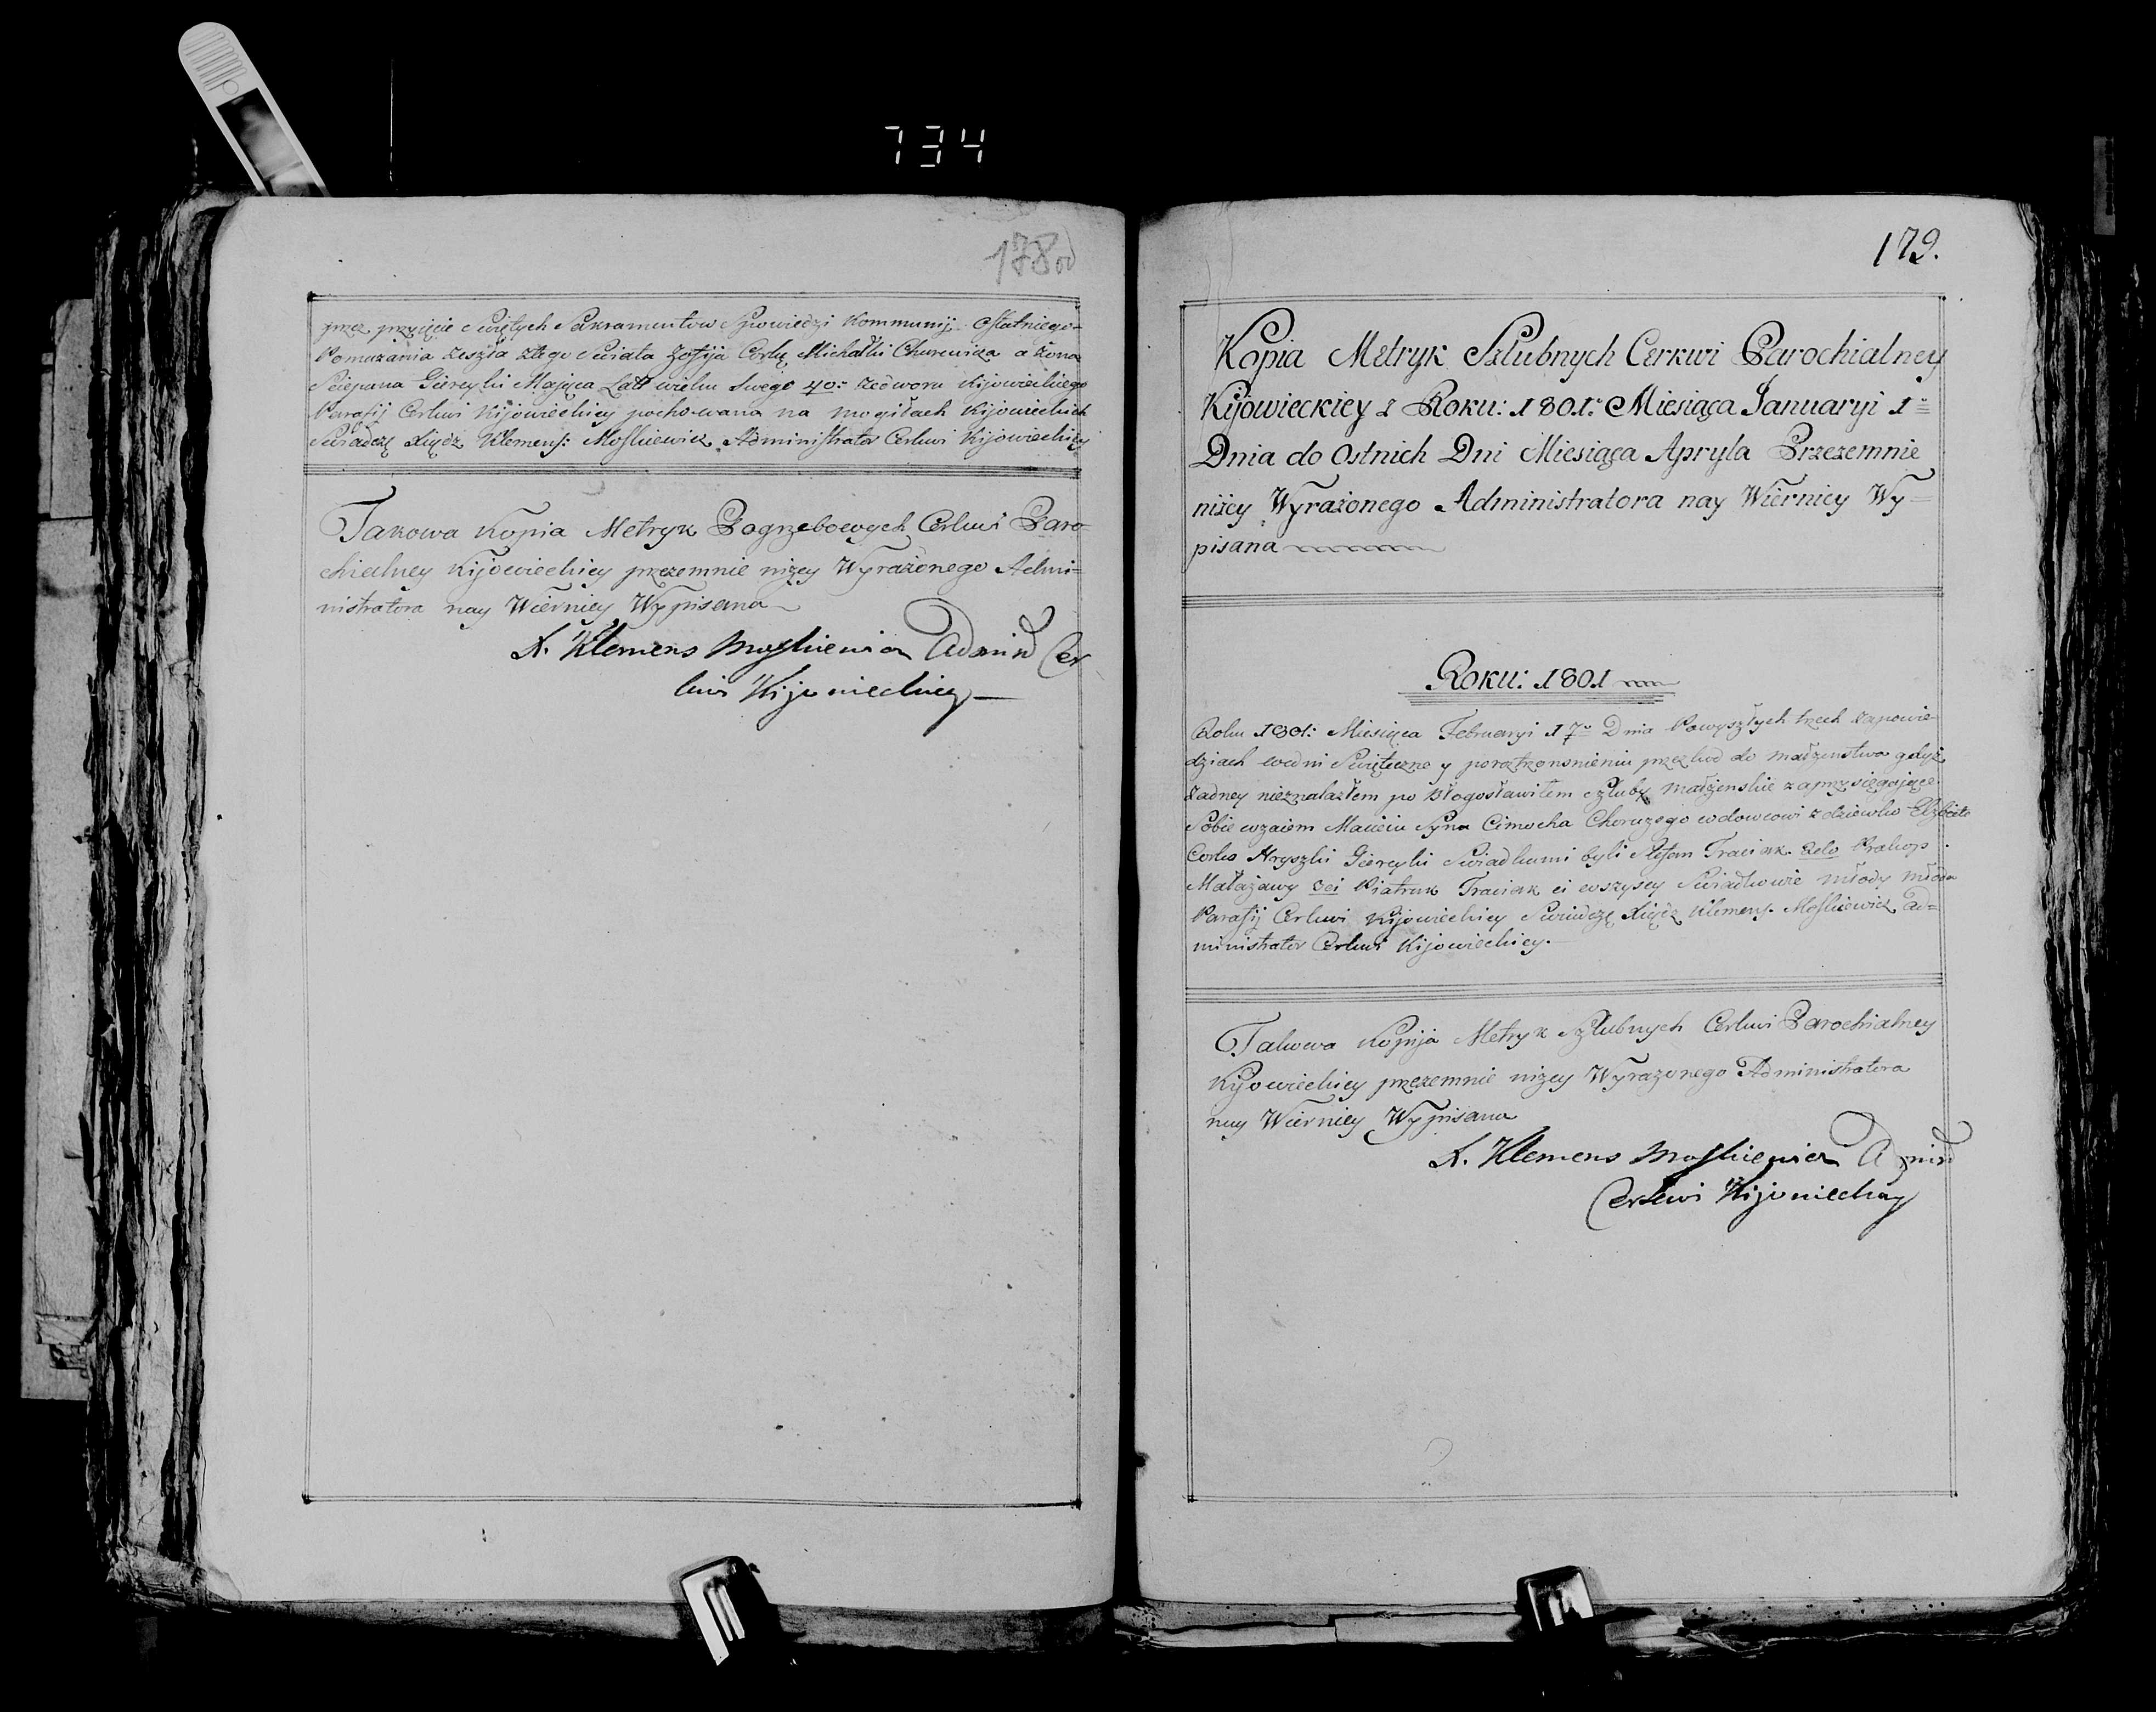 734
178 od
przez przyięcie Swiętych Sakramentow Spowiedzi Kommunij Ostatniego
Pomazania zeszła ztego Swiata Zofija Corkę Michałki Churewicza a żona
Sciepana Giereyki Maiąca Latt wieku Swego 40: zedworu Kijowieckiego
Parafij Cerkwi Kijowieckiey pochowana na mogiłach Kijowieckich
Swiadczę Xiądz Klemens: Moskiewicz Administrator Cerkwi Kijowieckiey
Takowa Kopia Metryk Pogrzebowych Cerkwi Paro-
chialney Kijowieckiey przezemnie niżey Wyrażonego Admi=
nistratora nay Wierniey Wypisana
X. Klemens Moskiewicz Admin Cer
kwi Kijowieckiey
179.
Kopia Metryk Szlubnych Cerkwi Parochialney
Kijowieckiey z Roku: 1801: Miesiąca Januaryi 1
Dnia do Ostnich Dni Miesiąca Apryla Przezemnie
niżey Wyrażonego Administratora nay Wierniey Wy=
pisana
Roku: 1801
Roku 1801: Miesiąca Februaryi 17 Dnia Powyszłych trzech zapowie-
dziach wedni Swięteczne y przeszkod do małżenstwa gdyż
żadney nieznalazłem po Błogosławiłem szluby małżenskie zaprzysięgające
Sobie wzaiem Macieia Syna Cimocha Choruzego wdowcowi z dziewko Elzbieto
Corko Hryszki Giereyki Swiadkami byli Stefan Traciak. 2do Prakop
Małażawy 3ci Piatruk Traciak ci wszyscy Swiadkowie
Parafij Cerkwi Kijowieckiey Swiadczę Xiądz Klemens. Moskiewicz ad=
ministrator Cerkwi Kijowieckiey.
Takowa Kopija Metryk Szlubnych Cerkwi Parochialney
Kijowieckiey przezemnie niżey Wyrazonego Administratora
nay Wierniey Wypisana
X. Klemens Moskiewicz Admin
Cerkwi Kijowieckiey